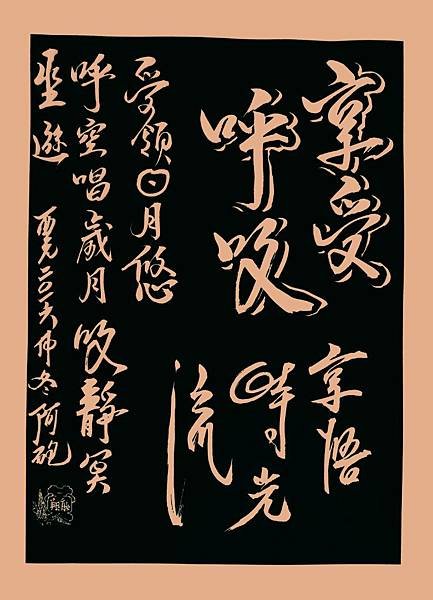 享受
呼吸
享悟
時光
流
受領日月悠
呼空唱歲月吸靜冥
聖遊 西元二〇一六仲冬阿砲